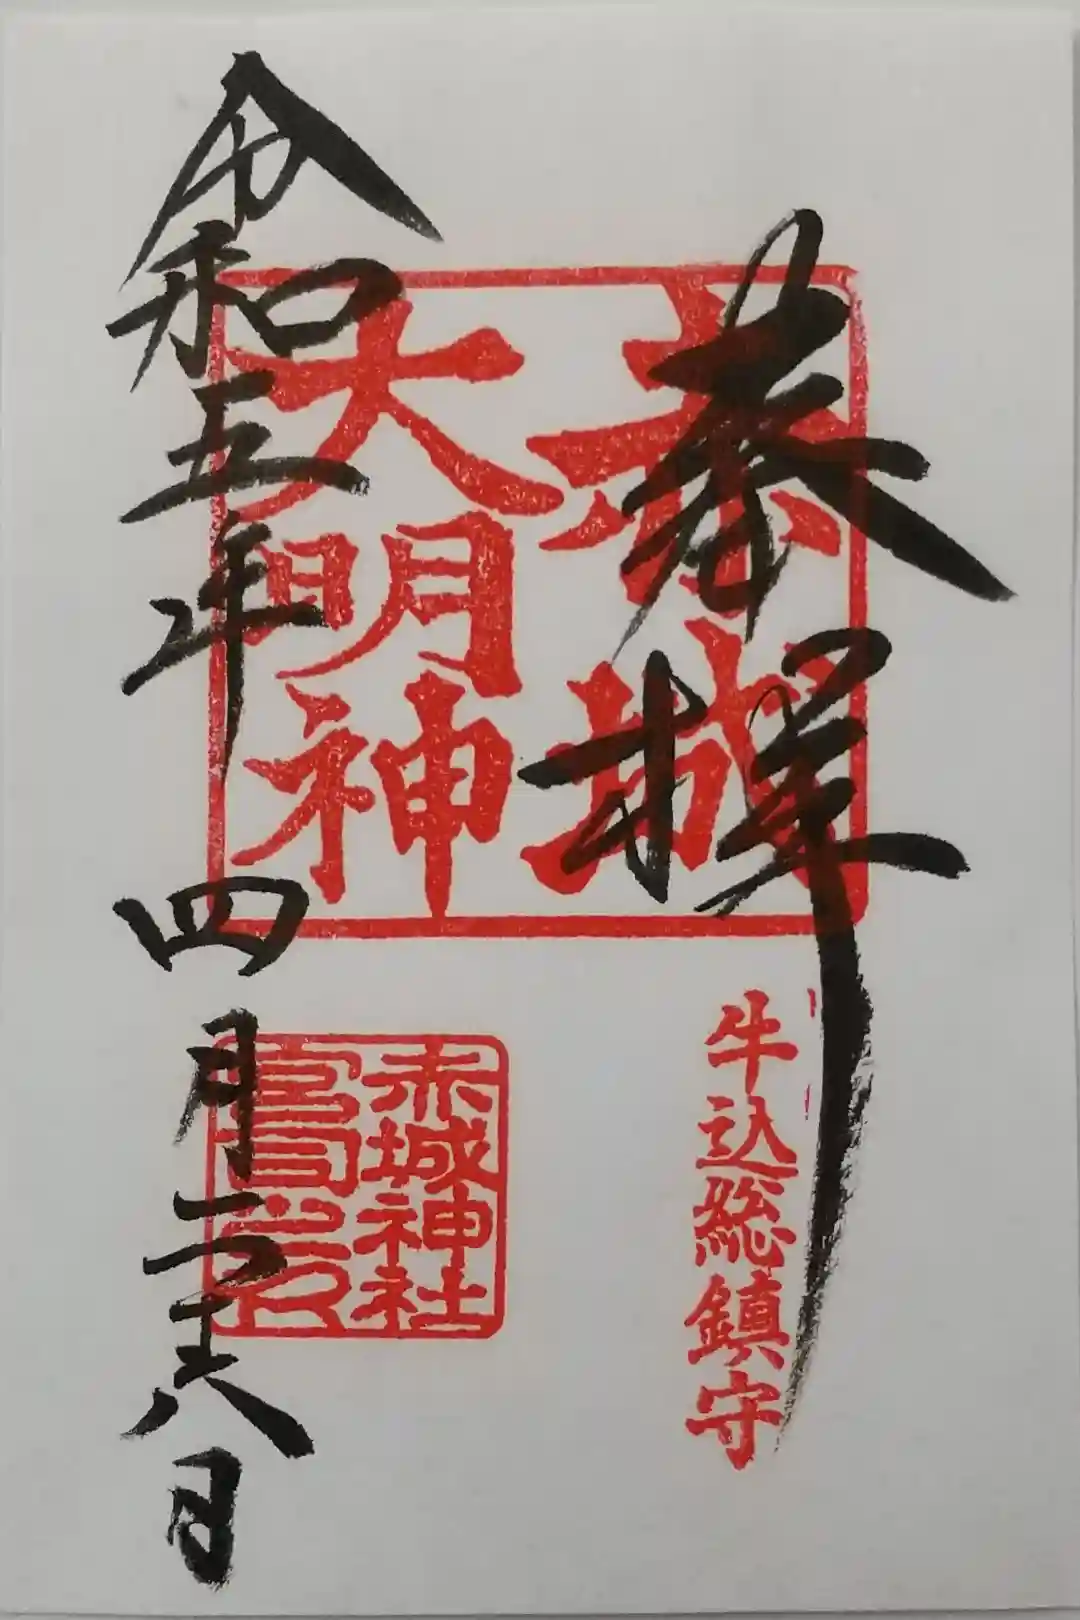 奉拝
赤城
大明神
牛込総鎮守
赤城神社
宮司之印
令和五年四月二十六日